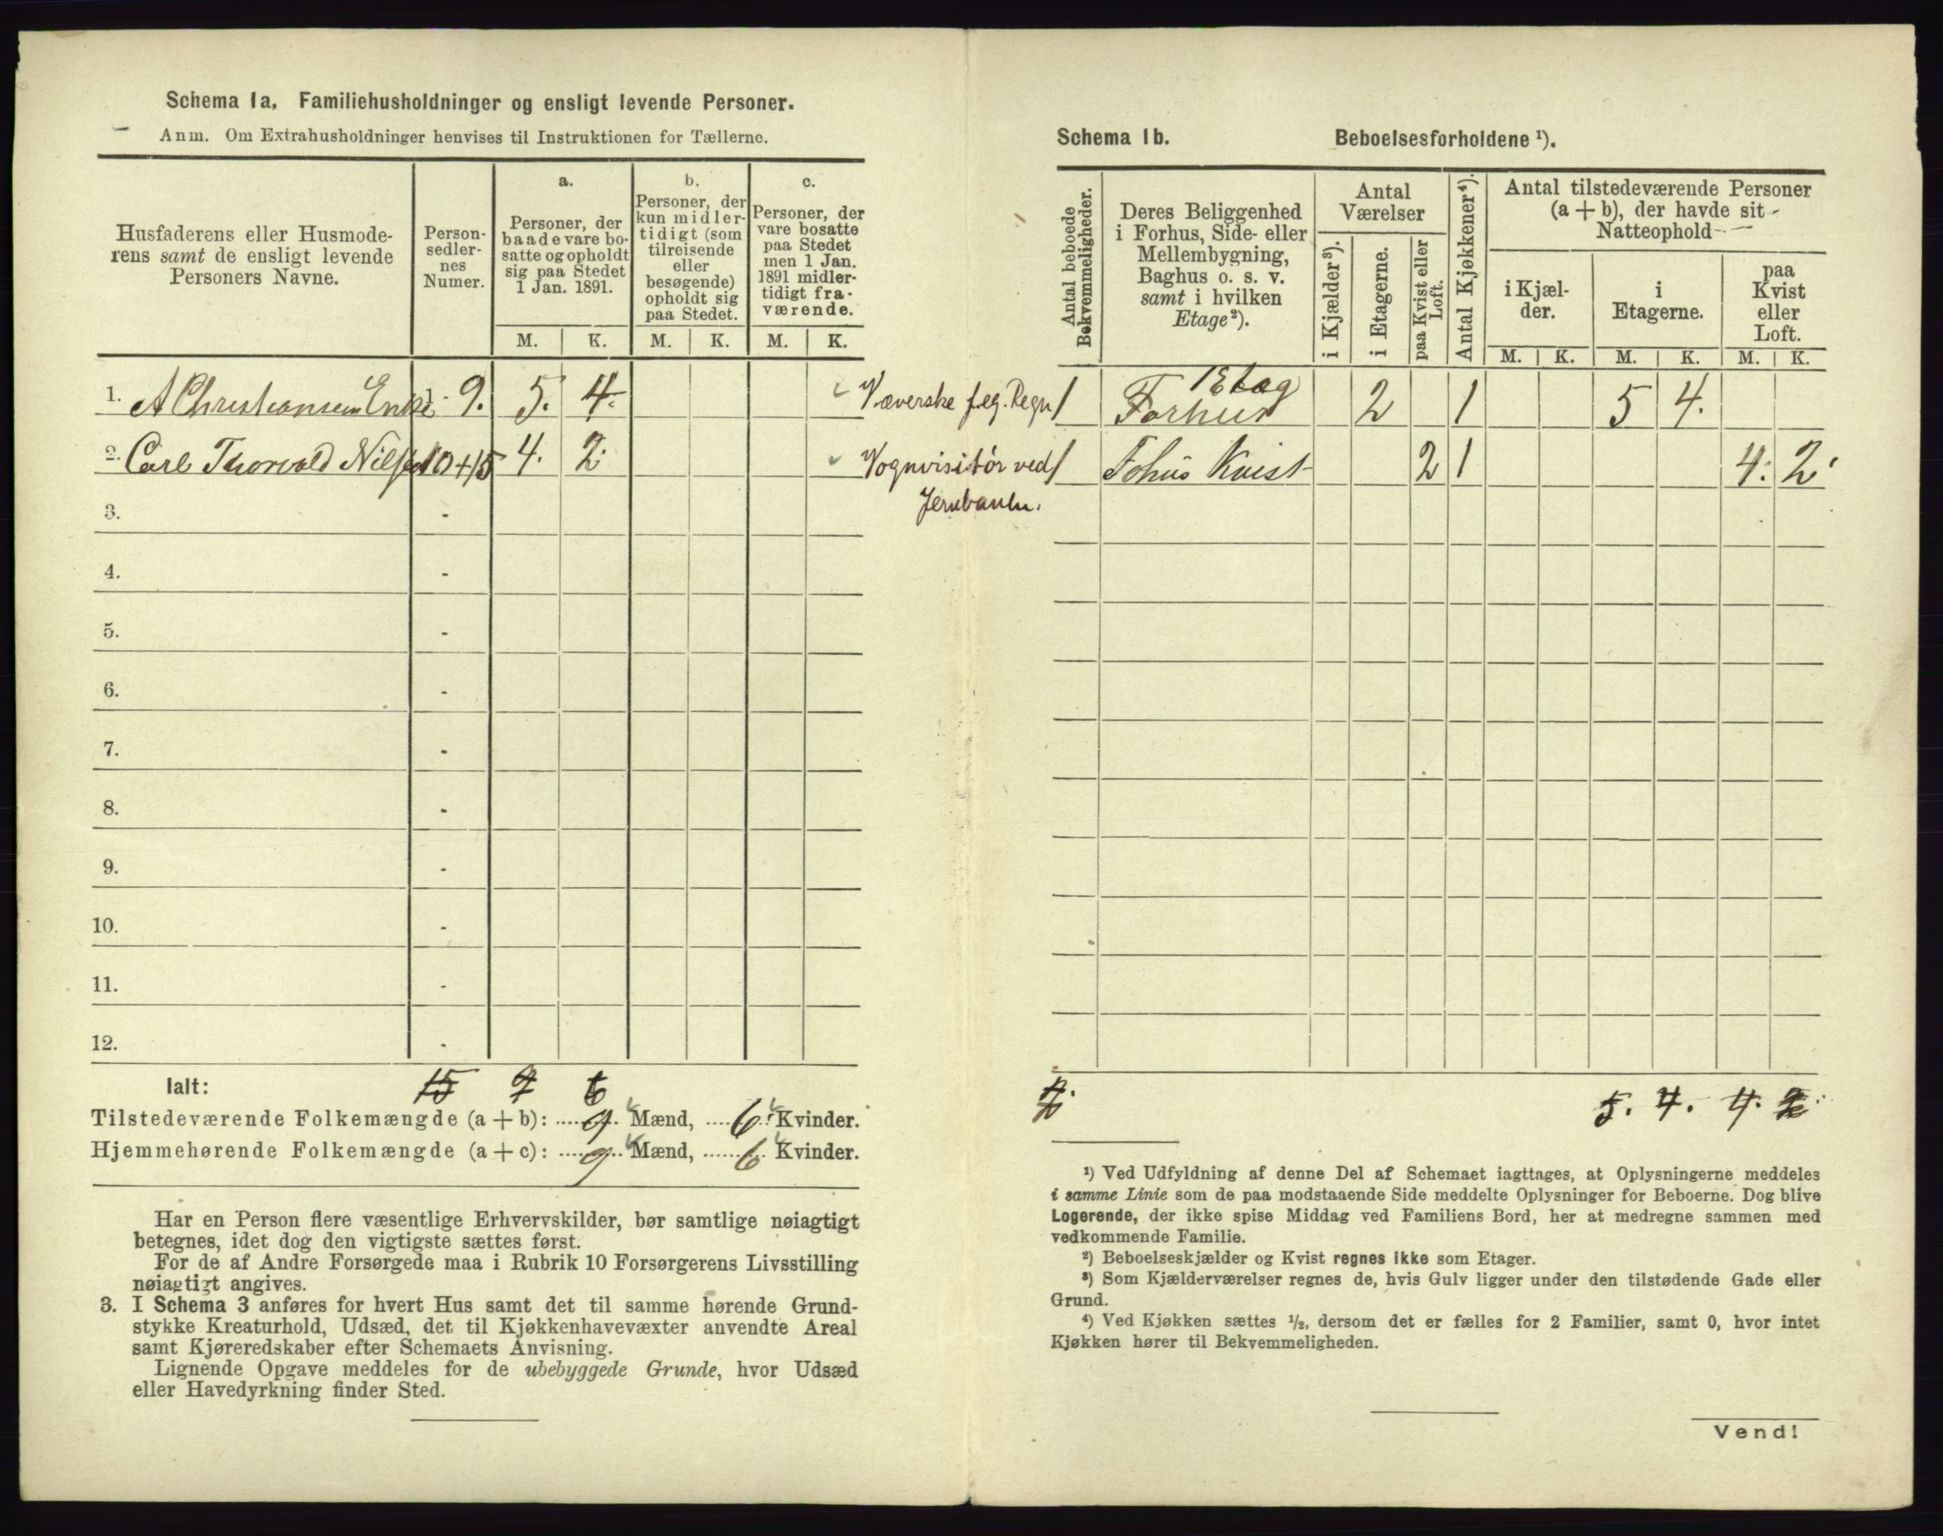 Schema 1a. Familiehusholdninger og ensligt levende Personer.
Anm. Om Extrahusholdninger henvises til Instruktionen for Tællerne.
Husfaderens eller Husmode-
rens samt de ensligt levende
Personers Navne.
Person-
sedler-
nes
Numer.
a.
Personer, der
baade vare bo-
satte og opholdt
sig paa Stedet
1 Jan. 1891.
b.
Personer, der
kun midler-
tidigt (som
tilreisende
eller
besøgende)
opholdt sig
paa Stedet.
c.
Personer, der
vare bosatte
paa Stedet
men 1 Jan.
1891 midler-
tidigt fra-
værende.
M. K. M. K. M. K.
1. A Christiansen Enke 1 - 9. 5. 4.
2. Carl Thorvald Nilsen 10+15 4. 2
3. -
4. -
5. -
6. -
7. -
8. -
9. -
10. -
11. -
12. -
Ialt: 15 9 6
Tilstedeværende Folkemængde (a + b): 9 Mænd, 6 Kvinder.
Hjemmehørende Folkemængde (a + c): 9 Mænd, 6 Kvinder.
Har en Person flere væsentlige Erhvervskilder, bør samtlige nøiagtigt
betegnes, idet dog den vigtigste sættes først.
For de af Andre Forsørgede maa i Rubrik 10 Forsørgerens Livsstilling
nøiagtigt angives.
3. I Schema 3 anføres for hvert Hus samt det til samme hørende Grund-
stykke Kreaturhold, Udsæd, det til Kjøkkenhavevæxter anvendte Areal
samt Kjøreredskaber efter Schemaets Anvisning.
Lignende Opgave meddeles for de ubebyggede Grunde, hvor Udsæd
eller Havedyrkning finder Sted.
Schema 1b. Beboelsesforholdene ¹).
Antal beboede
Bekvemmeligheder.
Deres Beliggenhed
i Forhus, Side- eller
Mellembygning,
Baghus o. s. v.
samt i hvilken
Etage²).
Antal
Værelser
i Kjælder³).
i Etagerne.
paa Kvist eller
Loft.
Antal Kjøkkener⁴).
Antal tilstedeværende Personer
(a + b), der havde sit
Natteophold
i Kjæl-
der.
i
Etagerne.
paa
Kvist
eller
Loft.
M. K. M. K. M. K.
Væverske f. eg. Regn 1 Forhus 1 Etag 2 1 5 4.
Vognvisitör ved 1 Fohus Kvist 2 1 4. 2
Jernbanen.
2. 5. 4. 4. 2
¹) Ved Udfyldning af denne Del af Schemaet iagttages, at Oplysningerne meddeles
i samme Linie som de paa modstaaende Side meddelte Oplysninger for Beboerne. Dog blive
Logerende, der ikke spise Middag ved Familiens Bord, her at medregne sammen med
vedkommende Familie.
²) Beboelseskjælder og Kvist regnes ikke som Etager.
³) Som Kjælderværelser regnes de, hvis Gulv ligger under den tilstødende Gade eller
Grund.
⁴) Ved Kjøkken sættes ½, dersom det er fælles for 2 Familier, samt 0, hvor intet
Kjøkken hører til Bekvemmeligheden.
Vend!